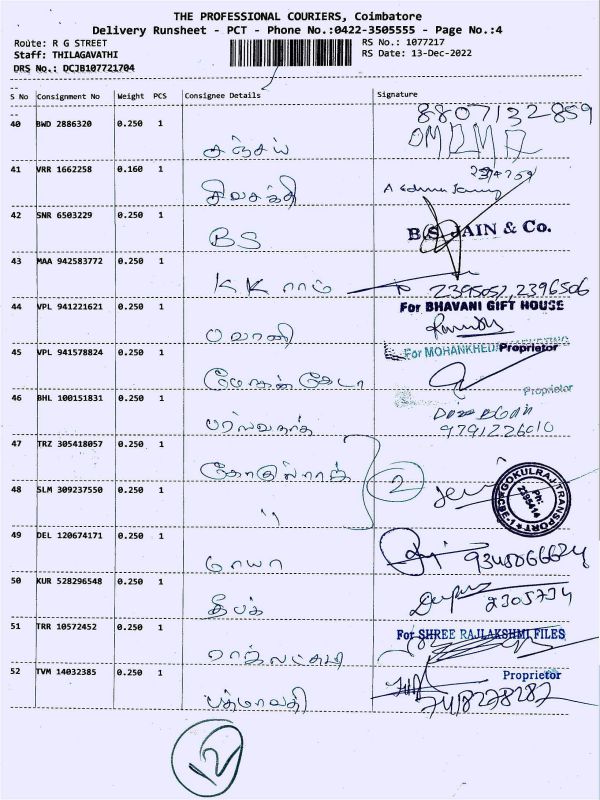 THE PROFESSIONAL COURIERS, Coimbatore
Delivery Runsheet - PCT - Phone No.:0422-3505555 - Page No.:4
Route: R G STREET RS No.: 1077217
Staff: THILAGAVATHI RS Date: 13-Dec-2022
DRS No.: DCJB107721704
S No Consignment No Weight PCS Consignee Details Signature
8807132859
40 BWD 2886320 0.250 1
சஞ்சய்
41 VRR 1662258 0.160 1
சிவசக்தி
42 SNR 6503229 0.250 1
BS B.S. JAIN & Co.
43 MAA 942583772 0.250 1
KK ராம் 2395057, 2396506
44 VPL 941221621 0.250 1 For BHAVANI GIFT HOUSE
பவானி
45 VPL 941578824 0.250 1 For MOHANKHEDA Proprietor
மோகன்கேடா Proprietor
46 BHL 100151831 0.250 1
பார்ஸ்வநாத் 9791226010
47 TRZ 305418057 0.250 1
கோகுல்ராஜ் 2
48 SLM 309237550 0.250 1 GOKULRAJ TRANSPORT CBE-1 Ph: 2395414
"
49 DEL 120674171 0.250 1
மாயா
50 KUR 528296548 0.250 1
தீபக் 2305734
51 TRR 10572452 0.250 1 For SHREE RAJLAKSHMI FILES
ராஜலட்சுமி
52 TVM 14032385 0.250 1 Proprietor
பத்மாவதி 7418278287
12